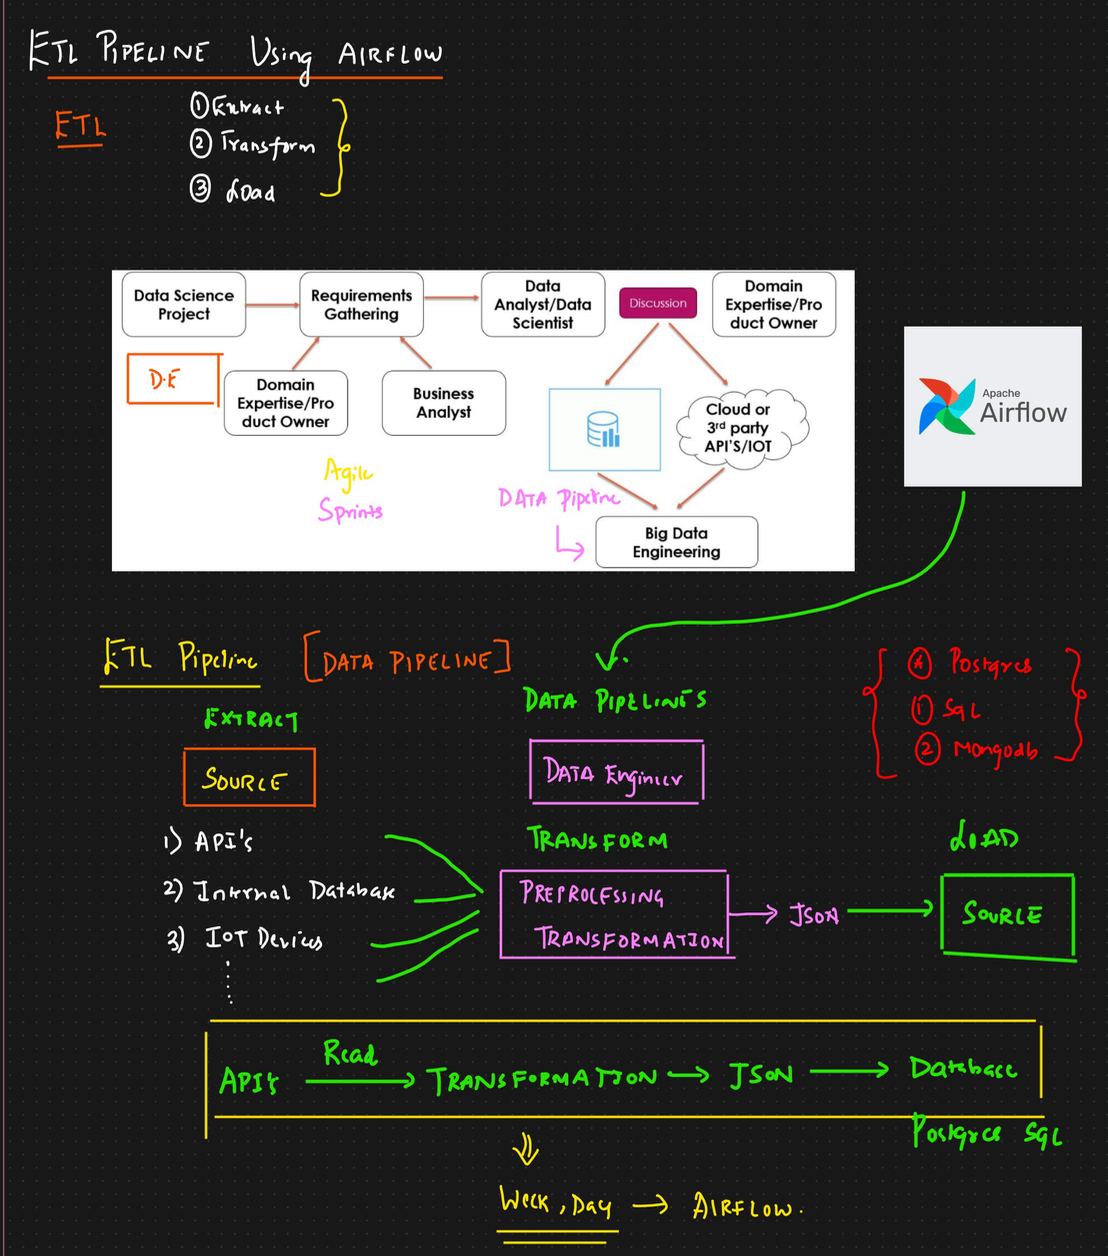 ETL PIPELINE Using AIRFLOW
ETL
① Extract
② Transform
③ Load
Data Science
Project
Requirements
Gathering
Data
Analyst/Data
Scientist
Discussion
Domain
Expertise/Pro
duct Owner
D.E
Domain
Expertise/Pro
duct Owner
Business
Analyst
Cloud or
3rd party
API'S/IOT
Agile
Sprints
DATA Pipeline
Big Data
Engineering
Apache
Airflow
ETL Pipeline [DATA PIPELINE]
DATA PIPELINES
Postgres
① SQL
② Mongodb
EXTRACT
SOURCE
DATA Engineer
1) API's
2) Internal Database
3) IOT Devices
TRANSFORM
PREPROCESSING
TRANSFORMATION
JSON
LOAD
SOURCE
API's Read TRANSFORMATION JSON Database
Postgres SQL
Week, Day → AIRFLOW.